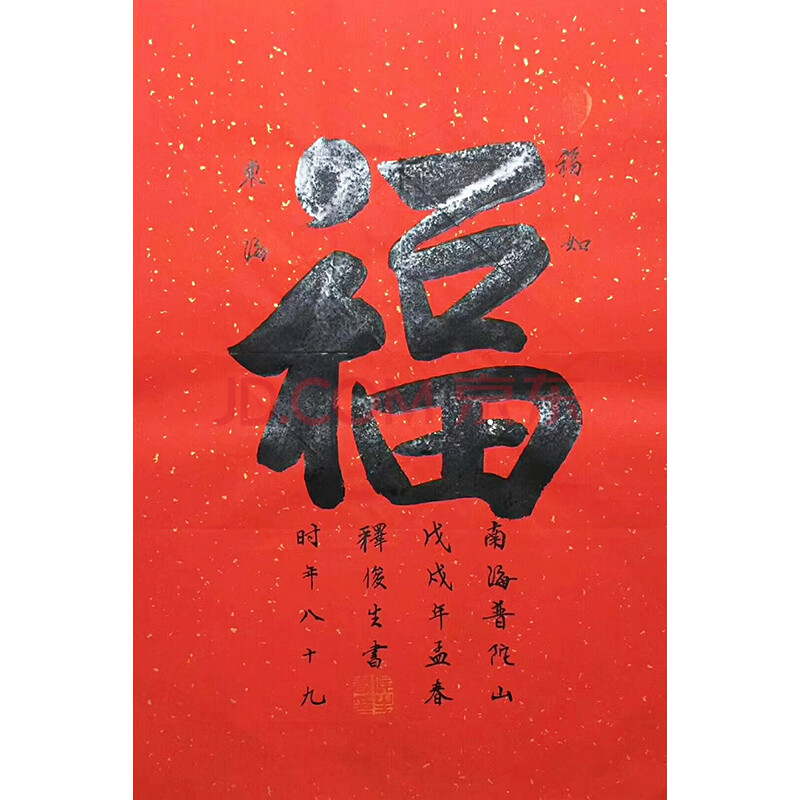 福如
東海
福
南海普陀山
戊戌年孟春
釋俊生書
时年八十九
JD.COM 京东